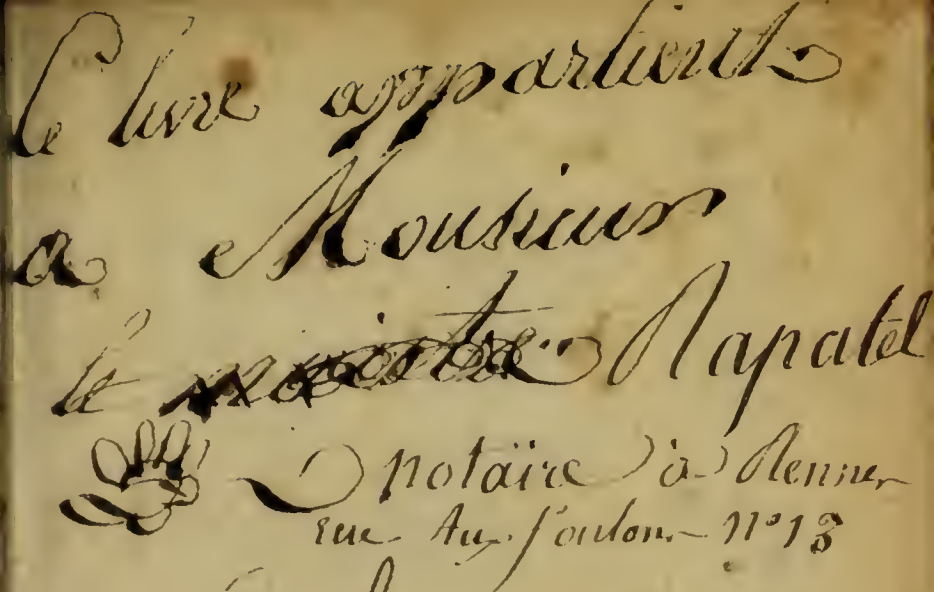 Ce livre appartient
a Monsieur
le ministre Rapatel
notaire à Rennes
rue Aux foulons N° 13